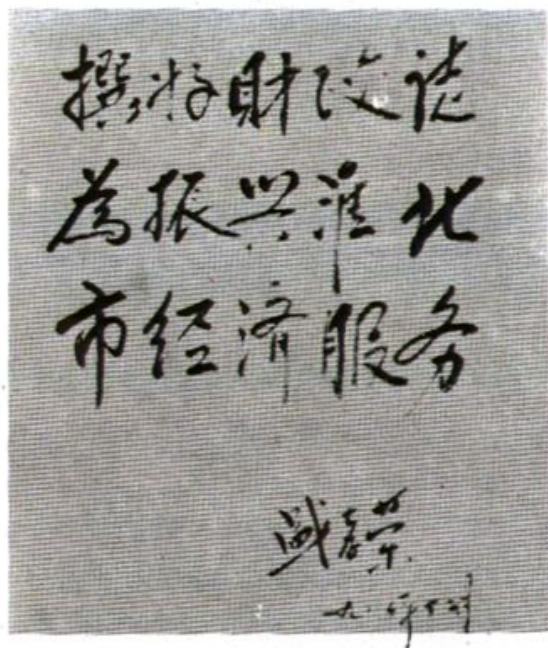 撰好财政誌
為振兴淮北
市经济服务